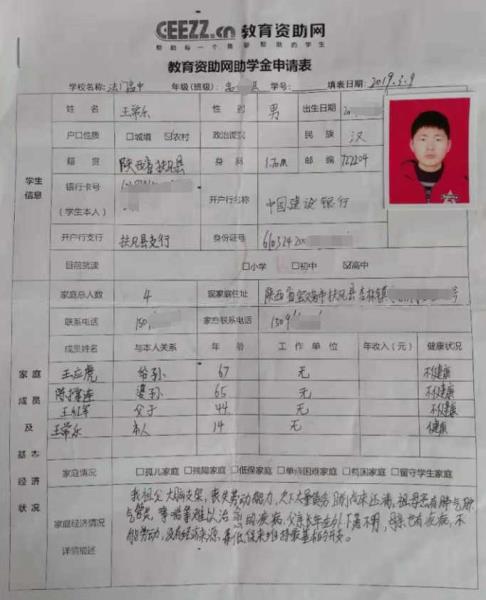 GEEZZ.cn 教育资助网
帮助每一个需要帮助的学生
教育资助网助学金申请表
学校名称: 法门高中 年级(班级): 高 学号: 填表日期: 2019.3.9
姓名 王常乐 性别 男 出生日期
户口性质 □城镇 ☑农村 政治面貌 民族 汉
籍贯 陕西省扶风县 身高 1.70m 邮编 722204
学生信息
银行卡号
(学生本人)
开户行名称 中国建设银行
开户行支行 扶风县支行 身份证号 610324200
目前就读 □小学 □初中 ☑高中
家庭总人数 4 现家庭住址 陕西省宝鸡市扶风县 镇 号
联系电话 150 家方联系电话 1509
成员姓名 与本人关系 年龄 工作单位 年收入(元) 健康状况
王应虎 爷孙 67 无 不健康
婆孙 65 无 不健康
王红军 父子 44 无 不健康
王常乐 本人 14 无 健康
家庭成员及基本经济状况
家庭情况 □孤儿家庭 □残障家庭 □低保家庭 □单亲困难家庭 □贫困家庭 □留守学生家庭
家庭经济情况
详情描述
我祖父大脑支架,丧失劳动能力,欠下大量债务 还清,祖母患有肺气肿
气管炎,哮喘等难以治 的疾病,父亲长年在外下落不明,母亲也有疾病,不
能劳动,没有经济来源,靠低保来维持最基本的开支。